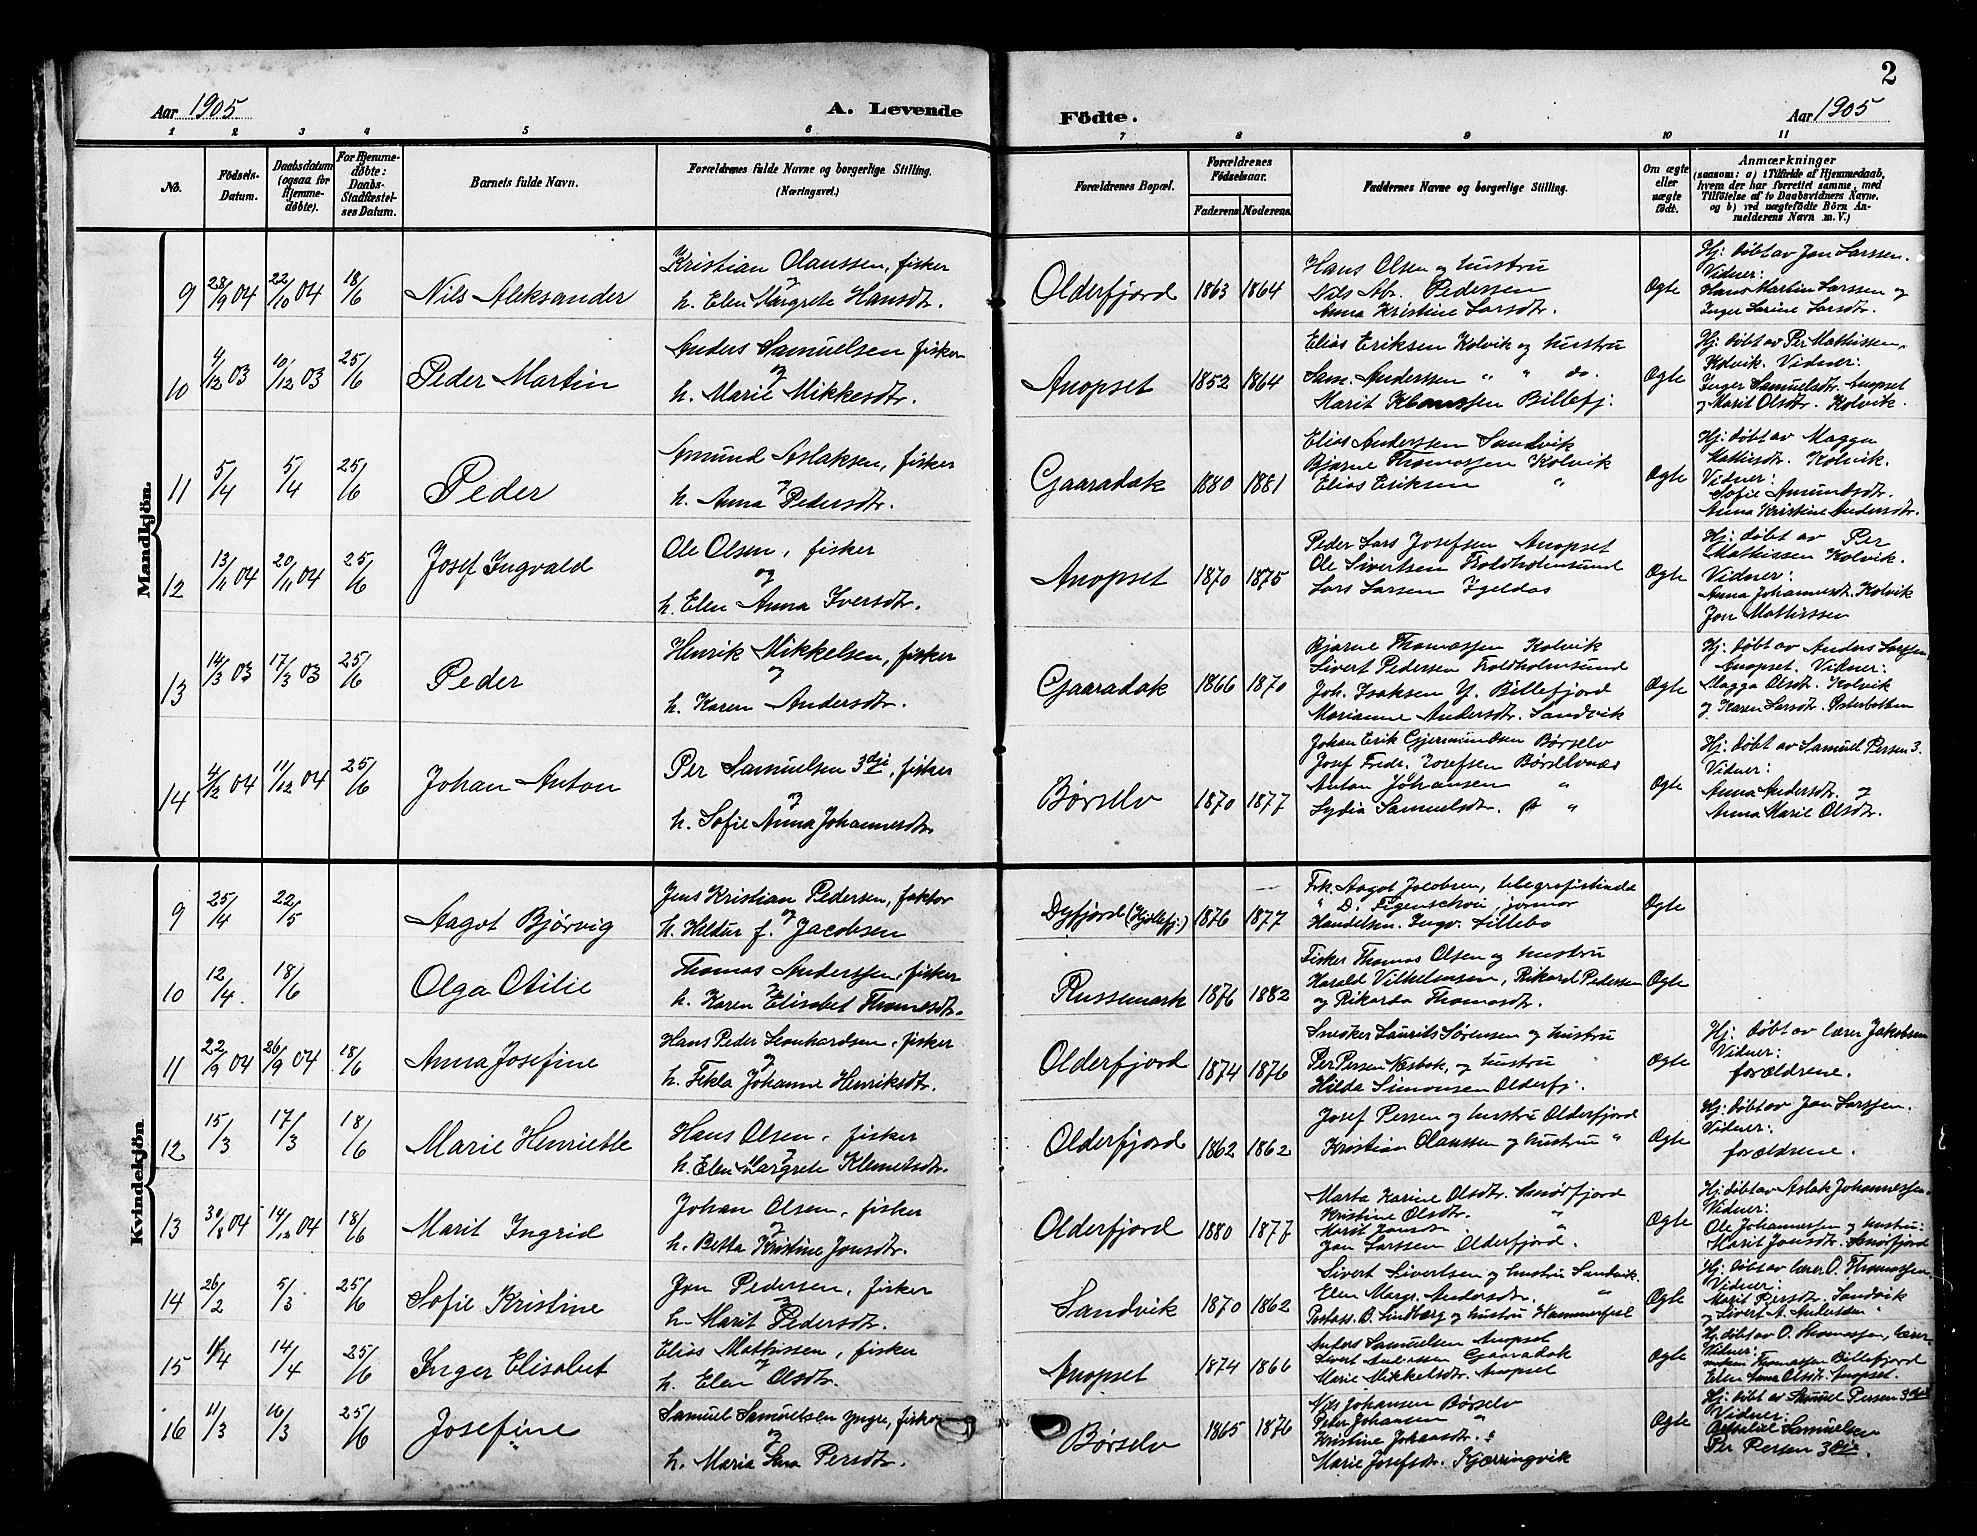 2
Aar 1905
A. Levende
Födte.
Aar 1905
1 2 3 4 5 6 7 8 9 10 11
No.
Födsels-
Datum.
Daabsdatum
(ogsaa for
Hjemme-
döbte).
For Hjemme-
döbte:
Daabs-
Stadfæstel-
ses Datum.
Barnets fulde Navn.
Forældrenes fulde Navne og borgerlige Stilling.
(Næringsvei.)
Forældrenes Bopæl.
Forældrenes
Födselsaar.
Faderens Moderens
Faddernes Navne og borgerlige Stilling.
Om ægte
eller
uægte
födt.
Anmærkninger
(saasom: a) i Tilfælde af Hjemmedaab,
hvem der har forrettet samme, med
Tilföielse af to Daabsvidners Navne.
og b) ved uægtefödte Börn An-
melderens Navn m. V.)
Mandkjön.
9 28/9 04 22/10 04 18/6 Nils Aleksander
Kristian Olaussen, fisker
og
h. Elen Margrete Hansdtr.
Olderfjord 1863 1864
Hans Olsen og hustru
Nils Pedersen
Anna Kristine Larsdtr.
Ægte
Hj. døbt av Jon Larssen.
Vidner:
Hans Martin Larssen og
Inger Sarine Larsdtr.
10 4/12 03 10/12 03 25/6 Peder Martin
Anders Samuelsen fisker
og
h. Marie Mikkelsdtr.
Anopset 1852 1864
Elias Eriksen Kolvik og hustru
Sam. Anderssen " " do.
Marit Billefj.
Ægte
Hj. døbt av Per Mathissen,
Kolvik. Vidner:
Inger Samuelsdtr. Anopset
og Marit Olsdtr. Kolvik.
11 5/4 5/4 25/6 Peder
Amund Aslaksen, fisker
og
h. Anna Pedersdtr.
Gaaradak 1880 1881
Elias Anderssen Sandvik
Bjarne Thomassen Kolvik
Elias Eriksen "
Ægte
Hj. døbt av Magga
Mattisdtr. Kolvik.
Vidner:
Sofie Amundsdtr.
Anna Kristine Andersdtr.
12 13/11 04 20/11 04 25/6 Josef Ingvald
Ole Olsen, fisker
og
h. Elen Anna Iversdtr.
Anopset 1870 1875
Peder Lars Josefsen Anopset
Ole Sivertsen Troldholmsund
Lars Larsen Igeldas
Ægte
Hj. døbt av Per
Mathissen Kolvik.
Vidner:
Anna Johannesdt. Kolvik
Jon Mathissen
13 14/3 03 17/3 03 25/6 Peder
Henrik Mikkelsen, fisker
og
h. Karen Andersdtr.
Gaaradak 1866 1870
Bjarne Thomassen Kolvik
Sivert Pedersen Troldholmsund
Joh. Isaksen Y. Billefjord
Marianne Andersdtr. Sandvik
Ægte
Hj. døbt av Anders Larssen,
Anopset. Vidner:
Magga Olsdt. Kolvik
og Karen Larsdtr. Østerbotten
14 4/12 04 11/12 04 25/6 Johan Anton
Per Samuelsen 3dje, fisker
og
h. Sofie Anna Johannesdtr.
Børselv 1870 1877
Johan Erik Gjermundsen Børselv
Josef Fredr. Josefsen Børselvnæs
Anton Johansen "
Lydia Samuelsdtr. "
Ægte
Hj. døbt av Samuel Persen 3.
Vidner:
Anna Andersdtr. og
Anna Marie Olsdtr.
Kvindekjön.
9 25/4 22/5 Aagot Bjørvig
Jens Kristian Pedersen, faktor
og
h. Hildur f. Jacobsen
Dyfjord (Kjøllefj.) 1876 1877
Frk. Aagot Jacobsen, telegrafistinde
" D. Figenschou, junior
Handelsm. Ingv. Lillebo
Ægte
10 12/4 18/6 Olga Otilie
Thomas Anderssen, fisker
og
h. Karen Elisabet Thomasdtr.
Russemark 1876 1882
Fisker Thomas Olsen og hustru
Harald Vilhelmsen, Rikard Pedersen
og Rikarda Thomasdtr.
Ægte
11 22/9 04 26/9 04 18/6 Anna Josefine
Hans Peder Leonhardsen, fisker
og
h. Tekla Johanne Henriksdtr.
Olderfjord 1874 1876
Snedker Laurits Sørensen og hustru
Per Persen Næsbak, og hustru
Hilda Simonsen Olderfj.
Ægte
Hj. døbt av lærer Jakobsen
Vidner:
forældrene.
12 15/3 17/3 18/6 Marie Henriette
Hans Olsen, fisker
og
h. Elen Margrete Klemetsdtr.
Olderfjord 1862 1862
Josef Persen og hustru Olderfjord
Kristian Olaussen og hustru "
Ægte
Hj. døbt av Jon Larssen.
Vidner:
forældrene.
13 30/8 04 14/12 04 18/6 Marit Ingrid
Johan Olsen, fisker
og
h. Betta Kristine Jonsdtr.
Olderfjord 1880 1877
Marta Karine Olsdtr. Snørfjord
Kristine Olsdtr. "
Marit "
Jon Larssen Olderfjord.
Ægte
Hj. døbt av Aslak Johannessen.
Vidner:
Ole Johannessen og hustru:
Marit Jonsdtr. Snørfjord
14 26/2 5/3 25/6 Sofie Kristine
Jon Pedersen, fisker
og
h. Marit Pedersdtr.
Sandvik 1870 1862
Sivert Sivertsen og hustru Sandvik.
Elen Margr. Andersdtr. "
O. Lindberg og hustru Hammerfest
Ægte
Hj. døbt av lærer O. Thomassen.
Vidner:
Marit Persdtr. Sandvik
og Sivert A. Anderssen "
15 11/4 14/4 25/6 Inger Elisabet
Elias Mathissen, fisker
og
h. Elen Olsdtr.
Anopset 1874 1866
Anders Samuelsen Anopset
Sivert Anderssen Gaaradak
Marie Mikkelsdtr. Anopset
Ægte
Hj. døbt av O. Thomassen, lærer
Vidner:
Thomassen Billefjord
Elen Anna Olsdtr. Anopset.
16 11/3 16/3 25/6 Josefine
Samuel Samuelsen yngre, fisker
og
h. Maria Persdtr.
Børselv 1865 1876
Nils Johansen Børselv
Peder Johansen "
Kristine Johansdtr. "
Marie Josefsdtr. Kjærringvik
Ægte
Hj. døbt av Samuel Persen 3dje
Vidner:
Samuelsen
Per Persen 3dje.